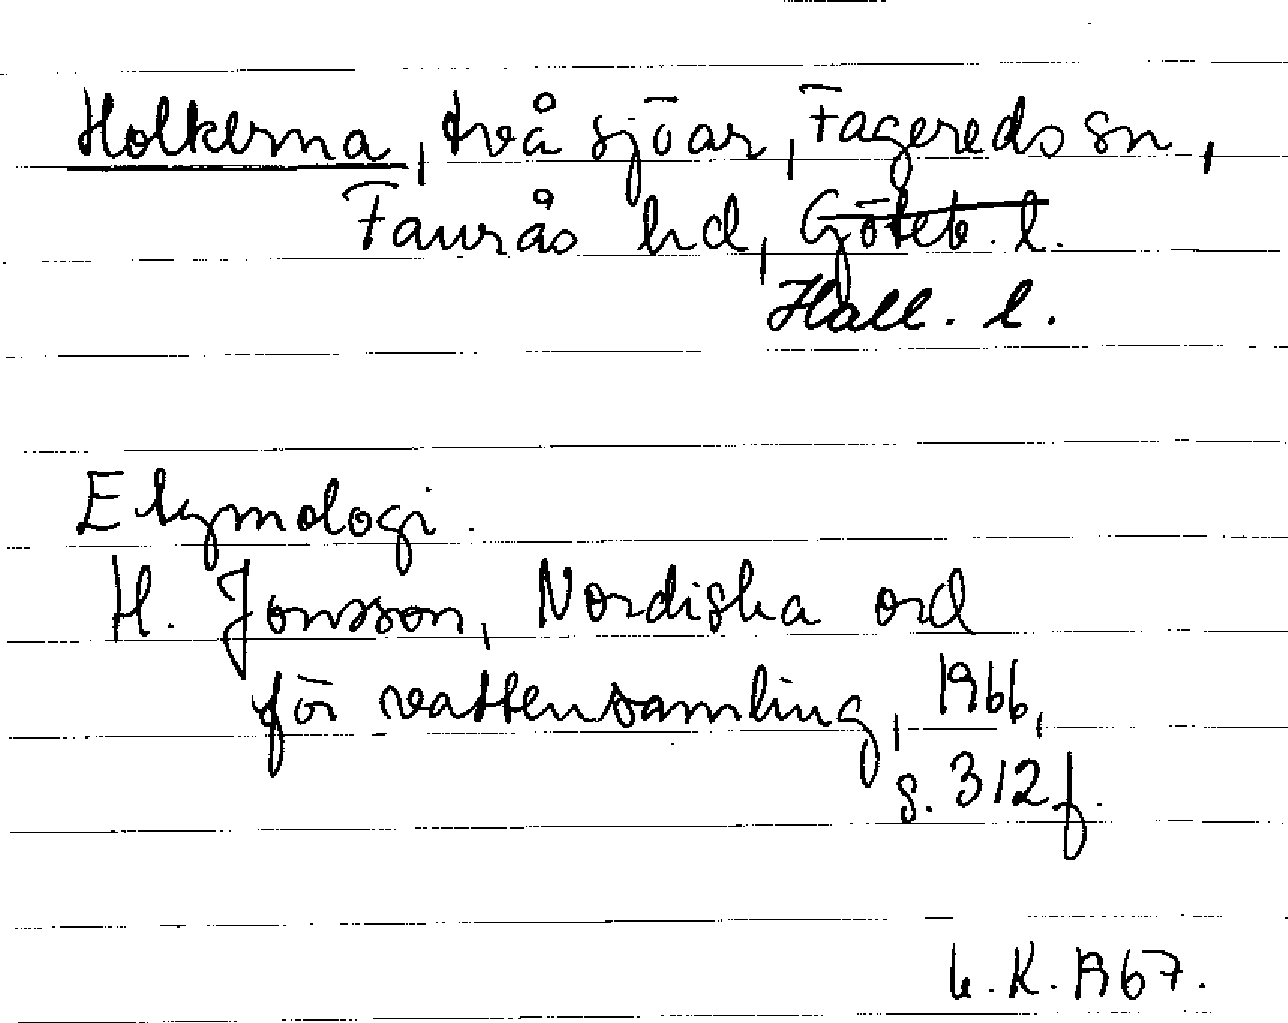 Holkerna, två sjöar, Fagereds sn,
Faurås hd, Göteb. l.
Hall. l.
Etymologi.
H. Jonsson, Nordiska ord
för vattensamling, 1966,
s. 312 f.
K. 1967.